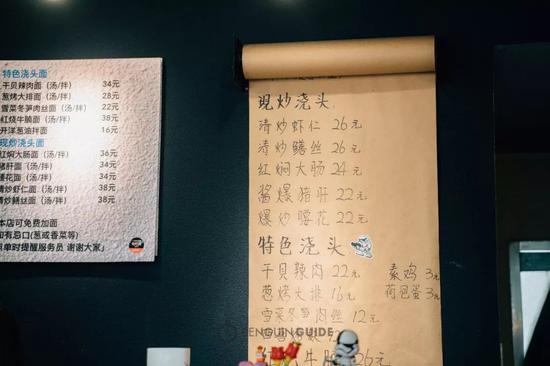 特色浇头面
干贝辣肉面（汤/拌） 34元
葱烤大排面（汤/拌） 28元
雪菜冬笋肉丝面（汤/拌） 22元
红烧牛腩面（汤/拌） 38元
开洋葱油拌面 16元
现炒浇头面
红焖大肠面（汤/拌） 36元
猪肝面（汤/拌） 34元
腰花面（汤/拌） 34元
清炒虾仁面（汤/拌） 38元
清炒鳝丝面（汤/拌） 38元
本店可免费加面
如有忌口(葱或香菜等)
点单时提醒服务员 谢谢大家」
现炒浇头
清炒虾仁 26元
清炒鳝丝 26元
红焖大肠 24元
酱爆猪肝 22元
爆炒腰花 22元
特色浇头
干贝辣肉 22元 素鸡 3元
葱烤大排 16元 荷包蛋 3元
雪菜冬笋肉丝 12元
牛 26元
PENGUIN GUIDE